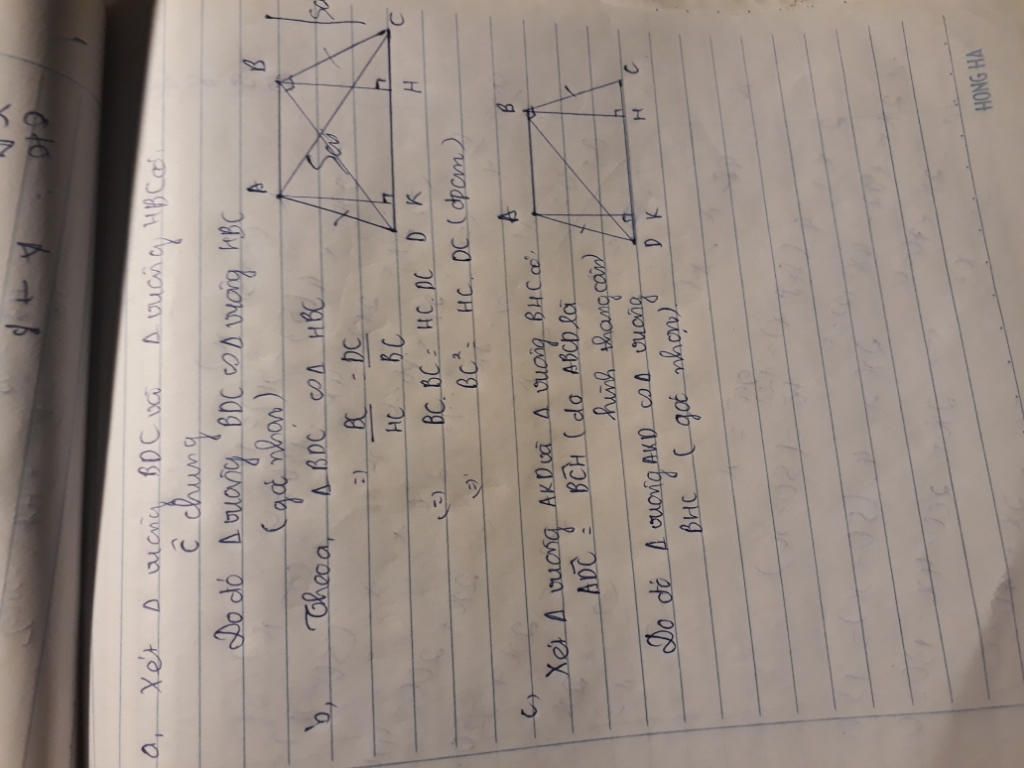 a, Xét Δ vuông BDC và Δ vuông HBC có
Ĉ chung
Do đó Δ vuông BDC ∽ Δ vuông HBC
(góc nhọn)
b, Theo a, Δ BDC ∽ Δ HBC
=> BC/HC = DC/BC
(=) BC.BC = HC.DC
(=) BC² = HC.DC (đpcm)
c, Xét Δ vuông AKD và Δ vuông BHC có
ADC = BCH (do ABCD là
hình thang cân)
Do đó Δ vuông AHD ∽ Δ vuông
BHC (góc nhọn)
A B
C
D K H
A B
D K H C
y + y :
HONG HA